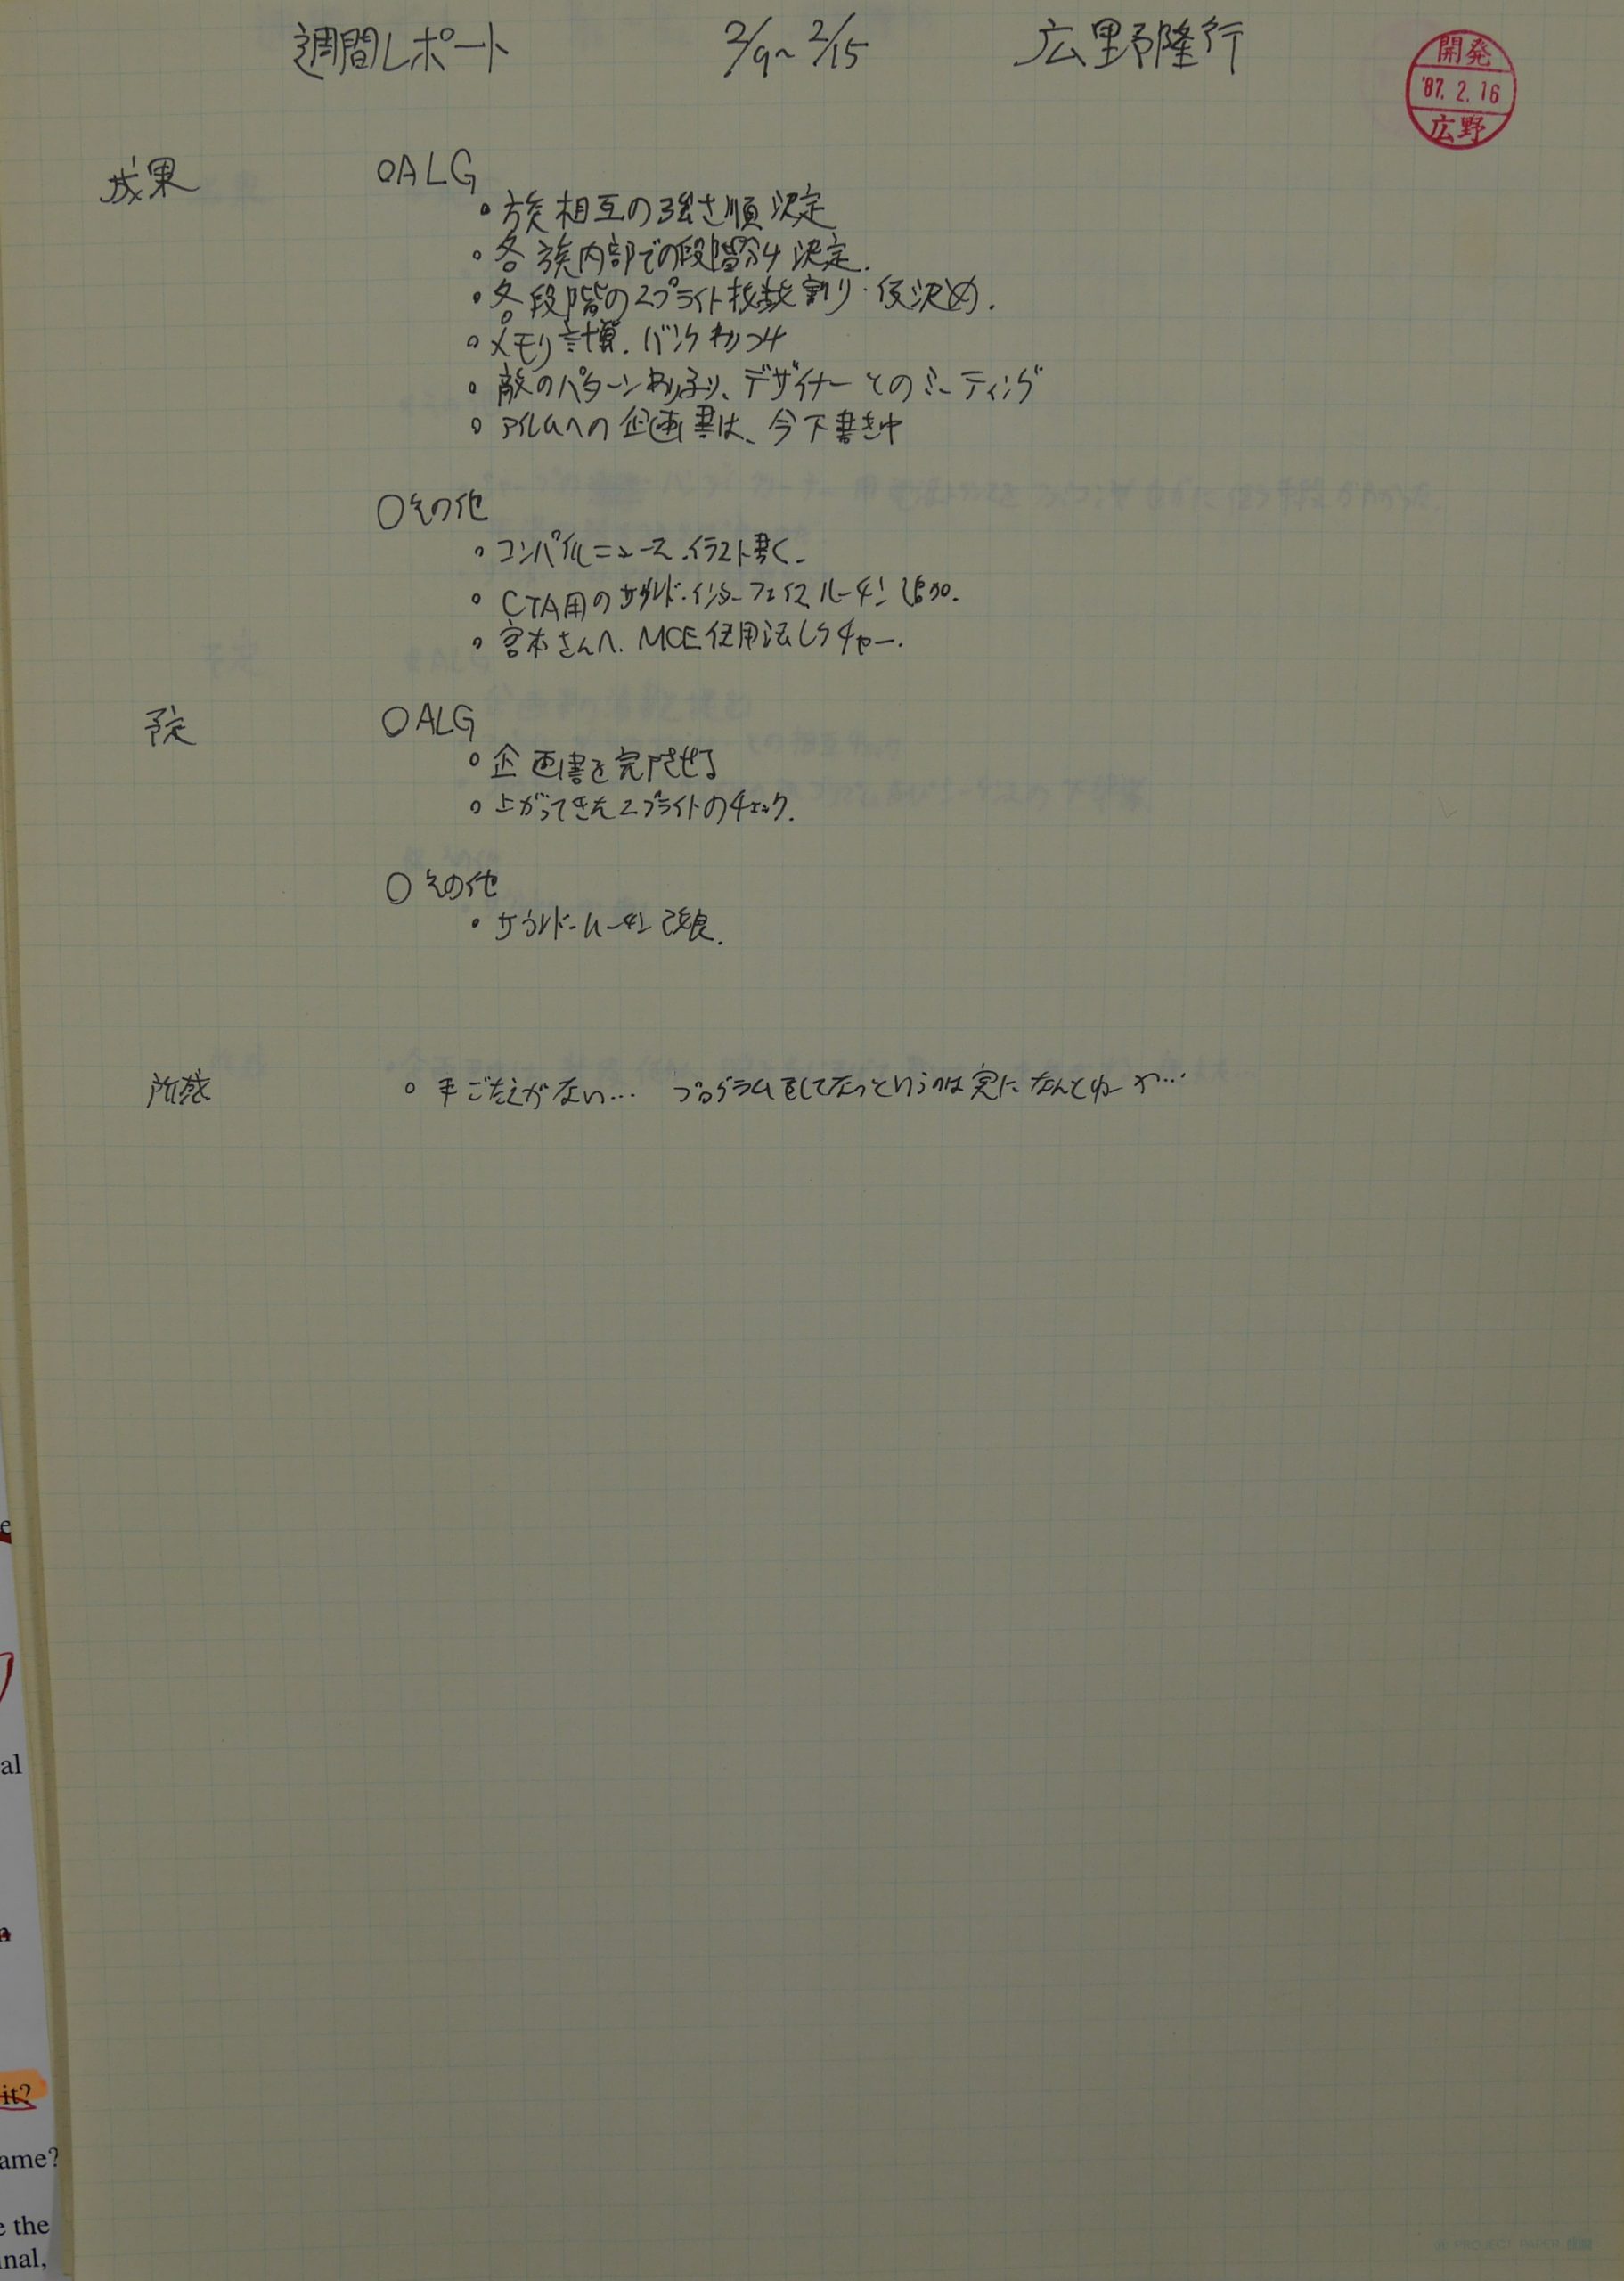 週間レポート 2/9~2/15 広野隆行
開発
'87.2.16
広野
成果 ○ALG
・族相互の強さ順決定
・各族内部での段階分け決定.
・各段階のスプライト枚数割り・仮決め.
・メモリ計算.バンクわつけ
・敵のパターンわりふり、デザイナーとのミーティング
・アイレムへの企画書は、今下書き中
○その他
・コンパイルニュース.イラスト書く.
・CTA用のサウンド・インターフェイスルーチン追加.
・宮本さんへ.MCE使用法レクチャー.
予定 ○ALG
・企画書を完了させる
・上がってきたスプライトのチェック.
○その他
・サウンド・ルーチン改良.
所感 ・手ごたえがない… プログラムをしてないというのは実になんとゆーか…
e
al
n
it?
ame?
e the
inal,